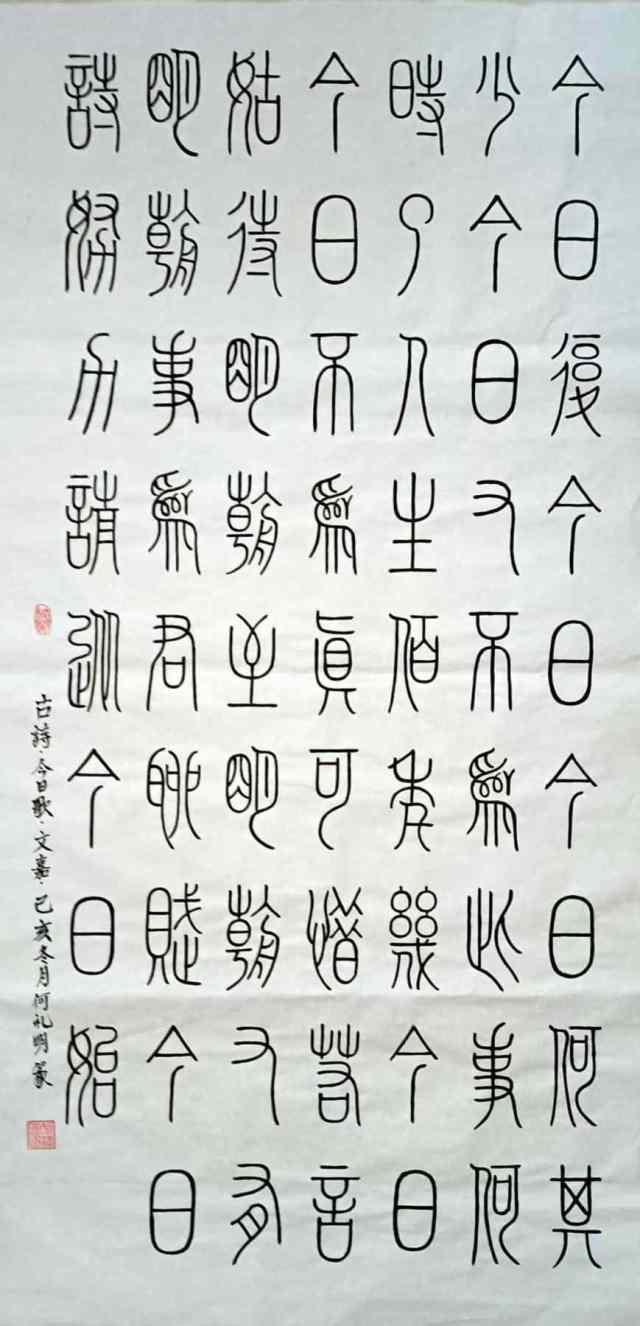 今日復今日今日何其
少今日又不爲此事何
時了人生百年幾今日
今日不爲真可惜若言
姑待明朝至明朝又有
明朝事爲君聊賦今日
詩努力請從今日始
古詩·今日歌·文嘉·己亥冬月何礼明篆